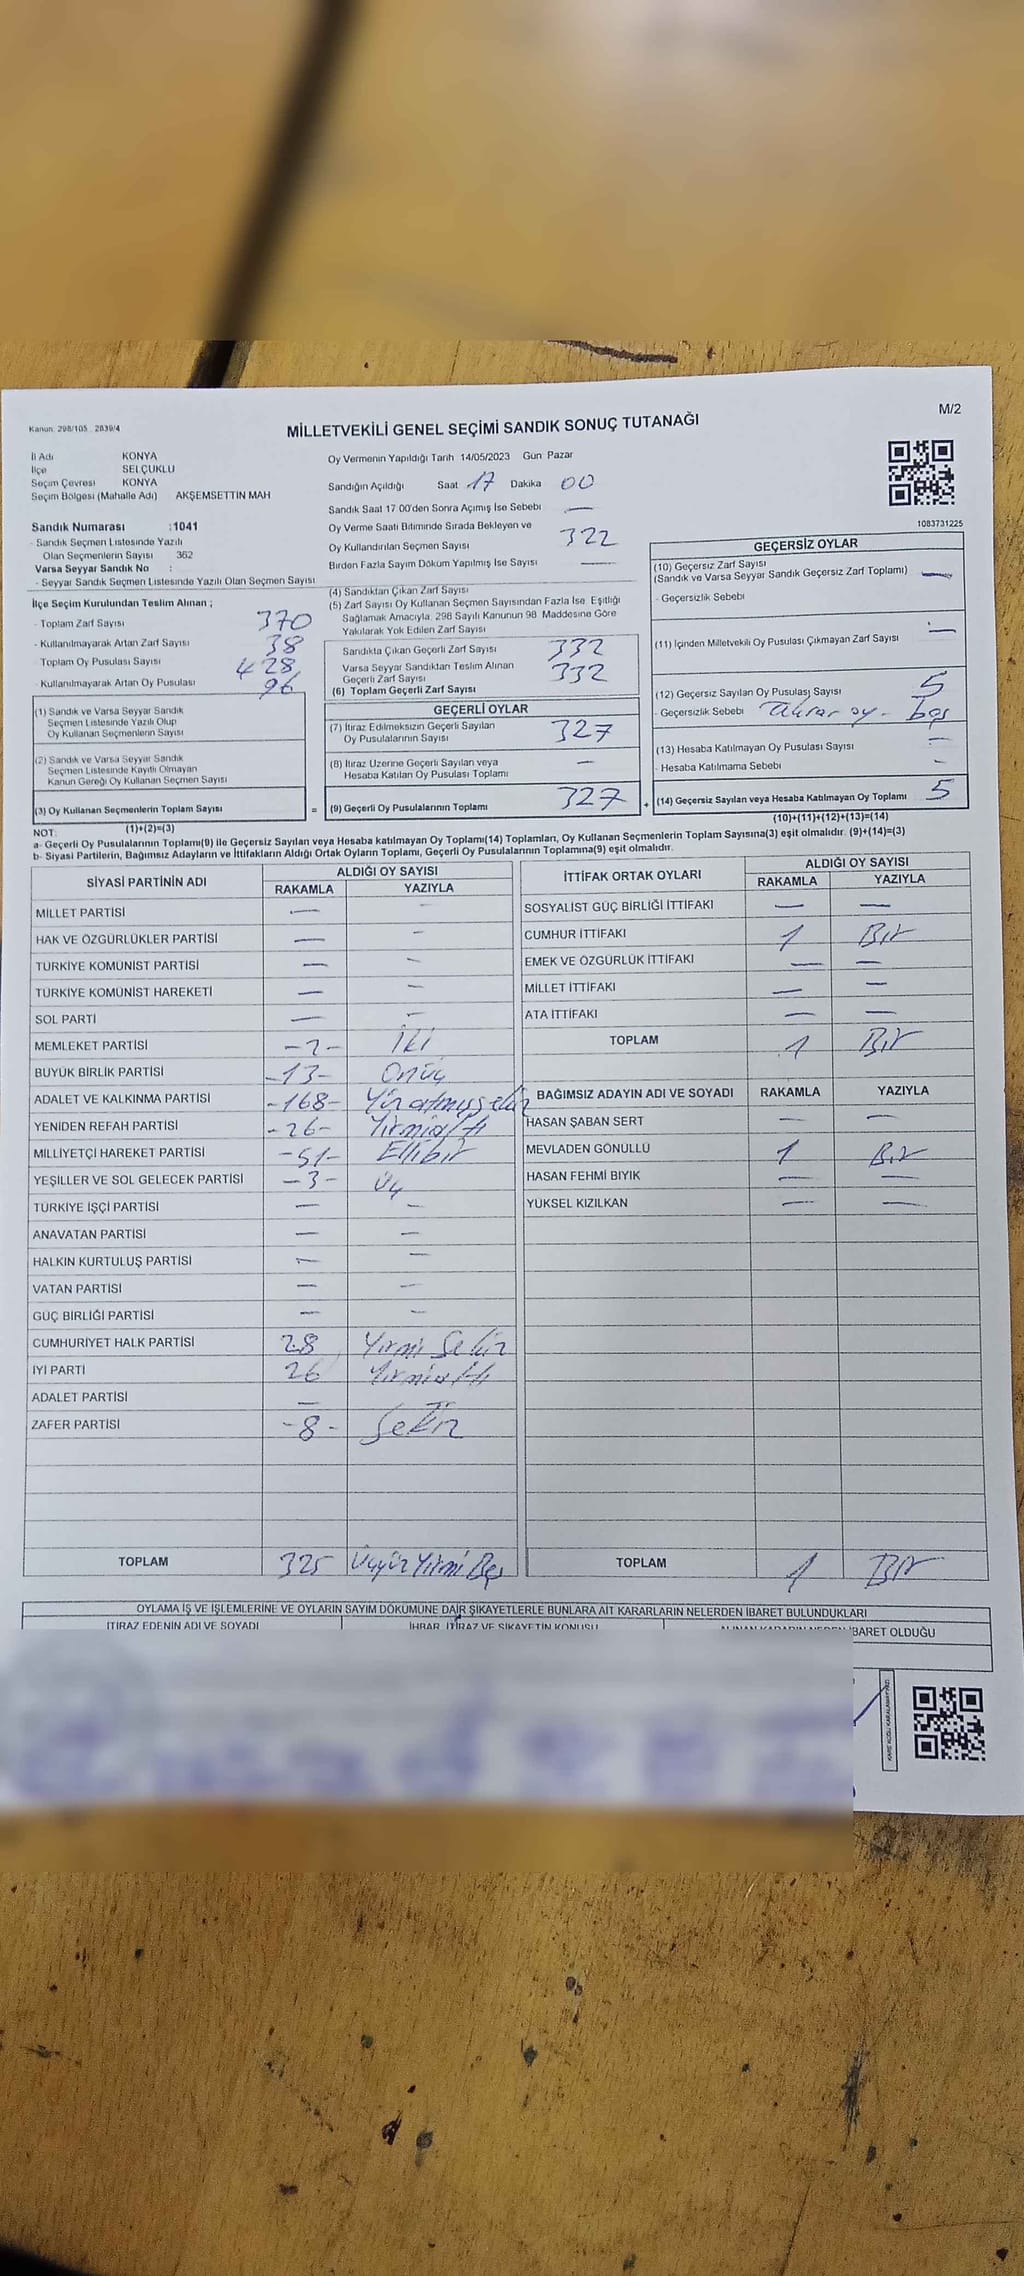 M/2
Kanun: 298/105 , 2839/4
MİLLETVEKİLİ GENEL SEÇİMİ SANDIK SONUÇ TUTANAĞI
İl Adı KONYA
İlçe SELÇUKLU
Seçim Çevresi KONYA
Seçim Bölgesi (Mahalle Adı) AKŞEMSETTİN MAH
Sandık Numarası :1041
- Sandık Seçmen Listesinde Yazılı
Olan Seçmenlerin Sayısı 362
Varsa Seyyar Sandık No :
- Seyyar Sandık Seçmen Listesinde Yazılı Olan Seçmen Sayısı
Oy Vermenin Yapıldığı Tarih 14/05/2023 Gün Pazar
Sandığın Açıldığı Saat 17 Dakika 00
Sandık Saat 17 00'den Sonra Açımış İse Sebebi —
Oy Verme Saati Bitiminde Sırada Bekleyen ve
Oy Kullandırılan Seçmen Sayısı 322
Birden Fazla Sayım Döküm Yapılmış İse Sayısı —
1083731225
İlçe Seçim Kurulundan Teslim Alınan ;
- Toplam Zarf Sayısı 370
- Kullanılmayarak Artan Zarf Sayısı 38
- Toplam Oy Pusulası Sayısı 428
- Kullanılmayarak Artan Oy Pusulası 96
(1) Sandık ve Varsa Seyyar Sandık
Seçmen Listesinde Yazılı Olup
Oy Kullanan Seçmenlerin Sayısı
(2) Sandık ve Varsa Seyyar Sandık
Seçmen Listesinde Kayıtlı Olmayan
Kanun Gereği Oy Kullanan Seçmen Sayısı
(3) Oy Kullanan Seçmenlerin Toplam Sayısı
(1)+(2)=(3)
(4) Sandıktan Çıkan Zarf Sayısı
(5) Zarf Sayısı Oy Kullanan Seçmen Sayısından Fazla İse, Eşitliği
Sağlamak Amacıyla; 298 Sayılı Kanunun 98. Maddesine Göre
Yakılarak Yok Edilen Zarf Sayısı
Sandıkta Çıkan Geçerli Zarf Sayısı 332
Varsa Seyyar Sandıktan Teslim Alınan
Geçerli Zarf Sayısı 332
(6) Toplam Geçerli Zarf Sayısı
GEÇERLİ OYLAR
(7) İtiraz Edilmeksizin Geçerli Sayılan
Oy Pusulalarının Sayısı 327
(8) İtiraz Üzerine Geçerli Sayılan veya
Hesaba Katılan Oy Pusulası Toplamı —
= (9) Geçerli Oy Pusulalarının Toplamı 327 +
GEÇERSİZ OYLAR
(10) Geçersiz Zarf Sayısı
(Sandık ve Varsa Seyyar Sandık Geçersiz Zarf Toplamı) —
- Geçersizlik Sebebi
(11) İçinden Milletvekili Oy Pusulası Çıkmayan Zarf Sayısı —
(12) Geçersiz Sayılan Oy Pusulası Sayısı 5
- Geçersizlik Sebebi
(13) Hesaba Katılmayan Oy Pusulası Sayısı —
- Hesaba Katılmama Sebebi -
(14) Geçersiz Sayılan veya Hesaba Katılmayan Oy Toplamı 5
(10)+(11)+(12)+(13)=(14)
NOT:
a- Geçerli Oy Pusulalarının Toplamı(9) ile Geçersiz Sayılan veya Hesaba katılmayan Oy Toplamı(14) Toplamları, Oy Kullanan Seçmenlerin Toplam Sayısına(3) eşit olmalıdır. (9)+(14)=(3)
b- Siyasi Partilerin, Bağımsız Adayların ve İttifakların Aldığı Ortak Oyların Toplamı, Geçerli Oy Pusulalarının Toplamına(9) eşit olmalıdır.
SİYASİ PARTİNİN ADI ALDIĞI OY SAYISI
RAKAMLA YAZIYLA
MİLLET PARTİSİ — -
HAK VE ÖZGÜRLÜKLER PARTİSİ — -
TÜRKİYE KOMÜNİST PARTİSİ — -
TÜRKİYE KOMÜNİST HAREKETİ — -
SOL PARTİ — -
MEMLEKET PARTİSİ -2- İki
BÜYÜK BİRLİK PARTİSİ -13- Onüç
ADALET VE KALKINMA PARTİSİ -168- Yüzatmışsekiz
YENİDEN REFAH PARTİSİ -26- Yirmialtı
MİLLİYETÇİ HAREKET PARTİSİ -51- Ellibir
YEŞİLLER VE SOL GELECEK PARTİSİ -3- Üç
TÜRKİYE İŞÇİ PARTİSİ — -
ANAVATAN PARTİSİ — —
HALKIN KURTULUŞ PARTİSİ — —
VATAN PARTİSİ — -
GÜÇ BİRLİĞİ PARTİSİ — -
CUMHURİYET HALK PARTİSİ 28 Yirmi Sekiz
İYİ PARTİ 26 Yirmialtı
ADALET PARTİSİ — —
ZAFER PARTİSİ -8- Sekiz
TOPLAM 325 Üçyüz Yirmi Beş
İTTİFAK ORTAK OYLARI ALDIĞI OY SAYISI
RAKAMLA YAZIYLA
SOSYALİST GÜÇ BİRLİĞİ İTTİFAKI — —
CUMHUR İTTİFAKI 1 Bir
EMEK VE ÖZGÜRLÜK İTTİFAKI — —
MİLLET İTTİFAKI — —
ATA İTTİFAKI — —
TOPLAM 1 Bir
BAĞIMSIZ ADAYIN ADI VE SOYADI RAKAMLA YAZIYLA
HASAN ŞABAN SERT — —
MEVLADEN GÖNÜLLÜ 1 Bir
HASAN FEHMİ BIYIK — —
YÜKSEL KIZILKAN — —
TOPLAM 1 Bir
OYLAMA İŞ VE İŞLEMLERİNE VE OYLARIN SAYIM DÖKÜMÜNE DAİR ŞİKAYETLERLE BUNLARA AİT KARARLARIN NELERDEN İBARET BULUNDUKLARI
İTİRAZ EDENİN ADI VE SOYADI İHBAR, İTİRAZ VE ŞİKAYETİN KONUSU ALINAN KARARIN NEDEN İBARET OLDUĞU